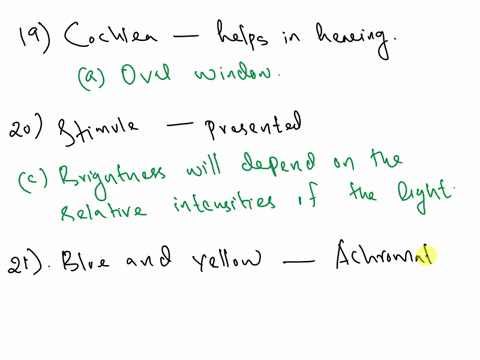 19) Cochlea — helps in hearing.
(a) Oval window.
20) Stimule — presented
(c) Brigntness will depend on the
relative intensities of the light.
21). Blue and yellow — Achromat